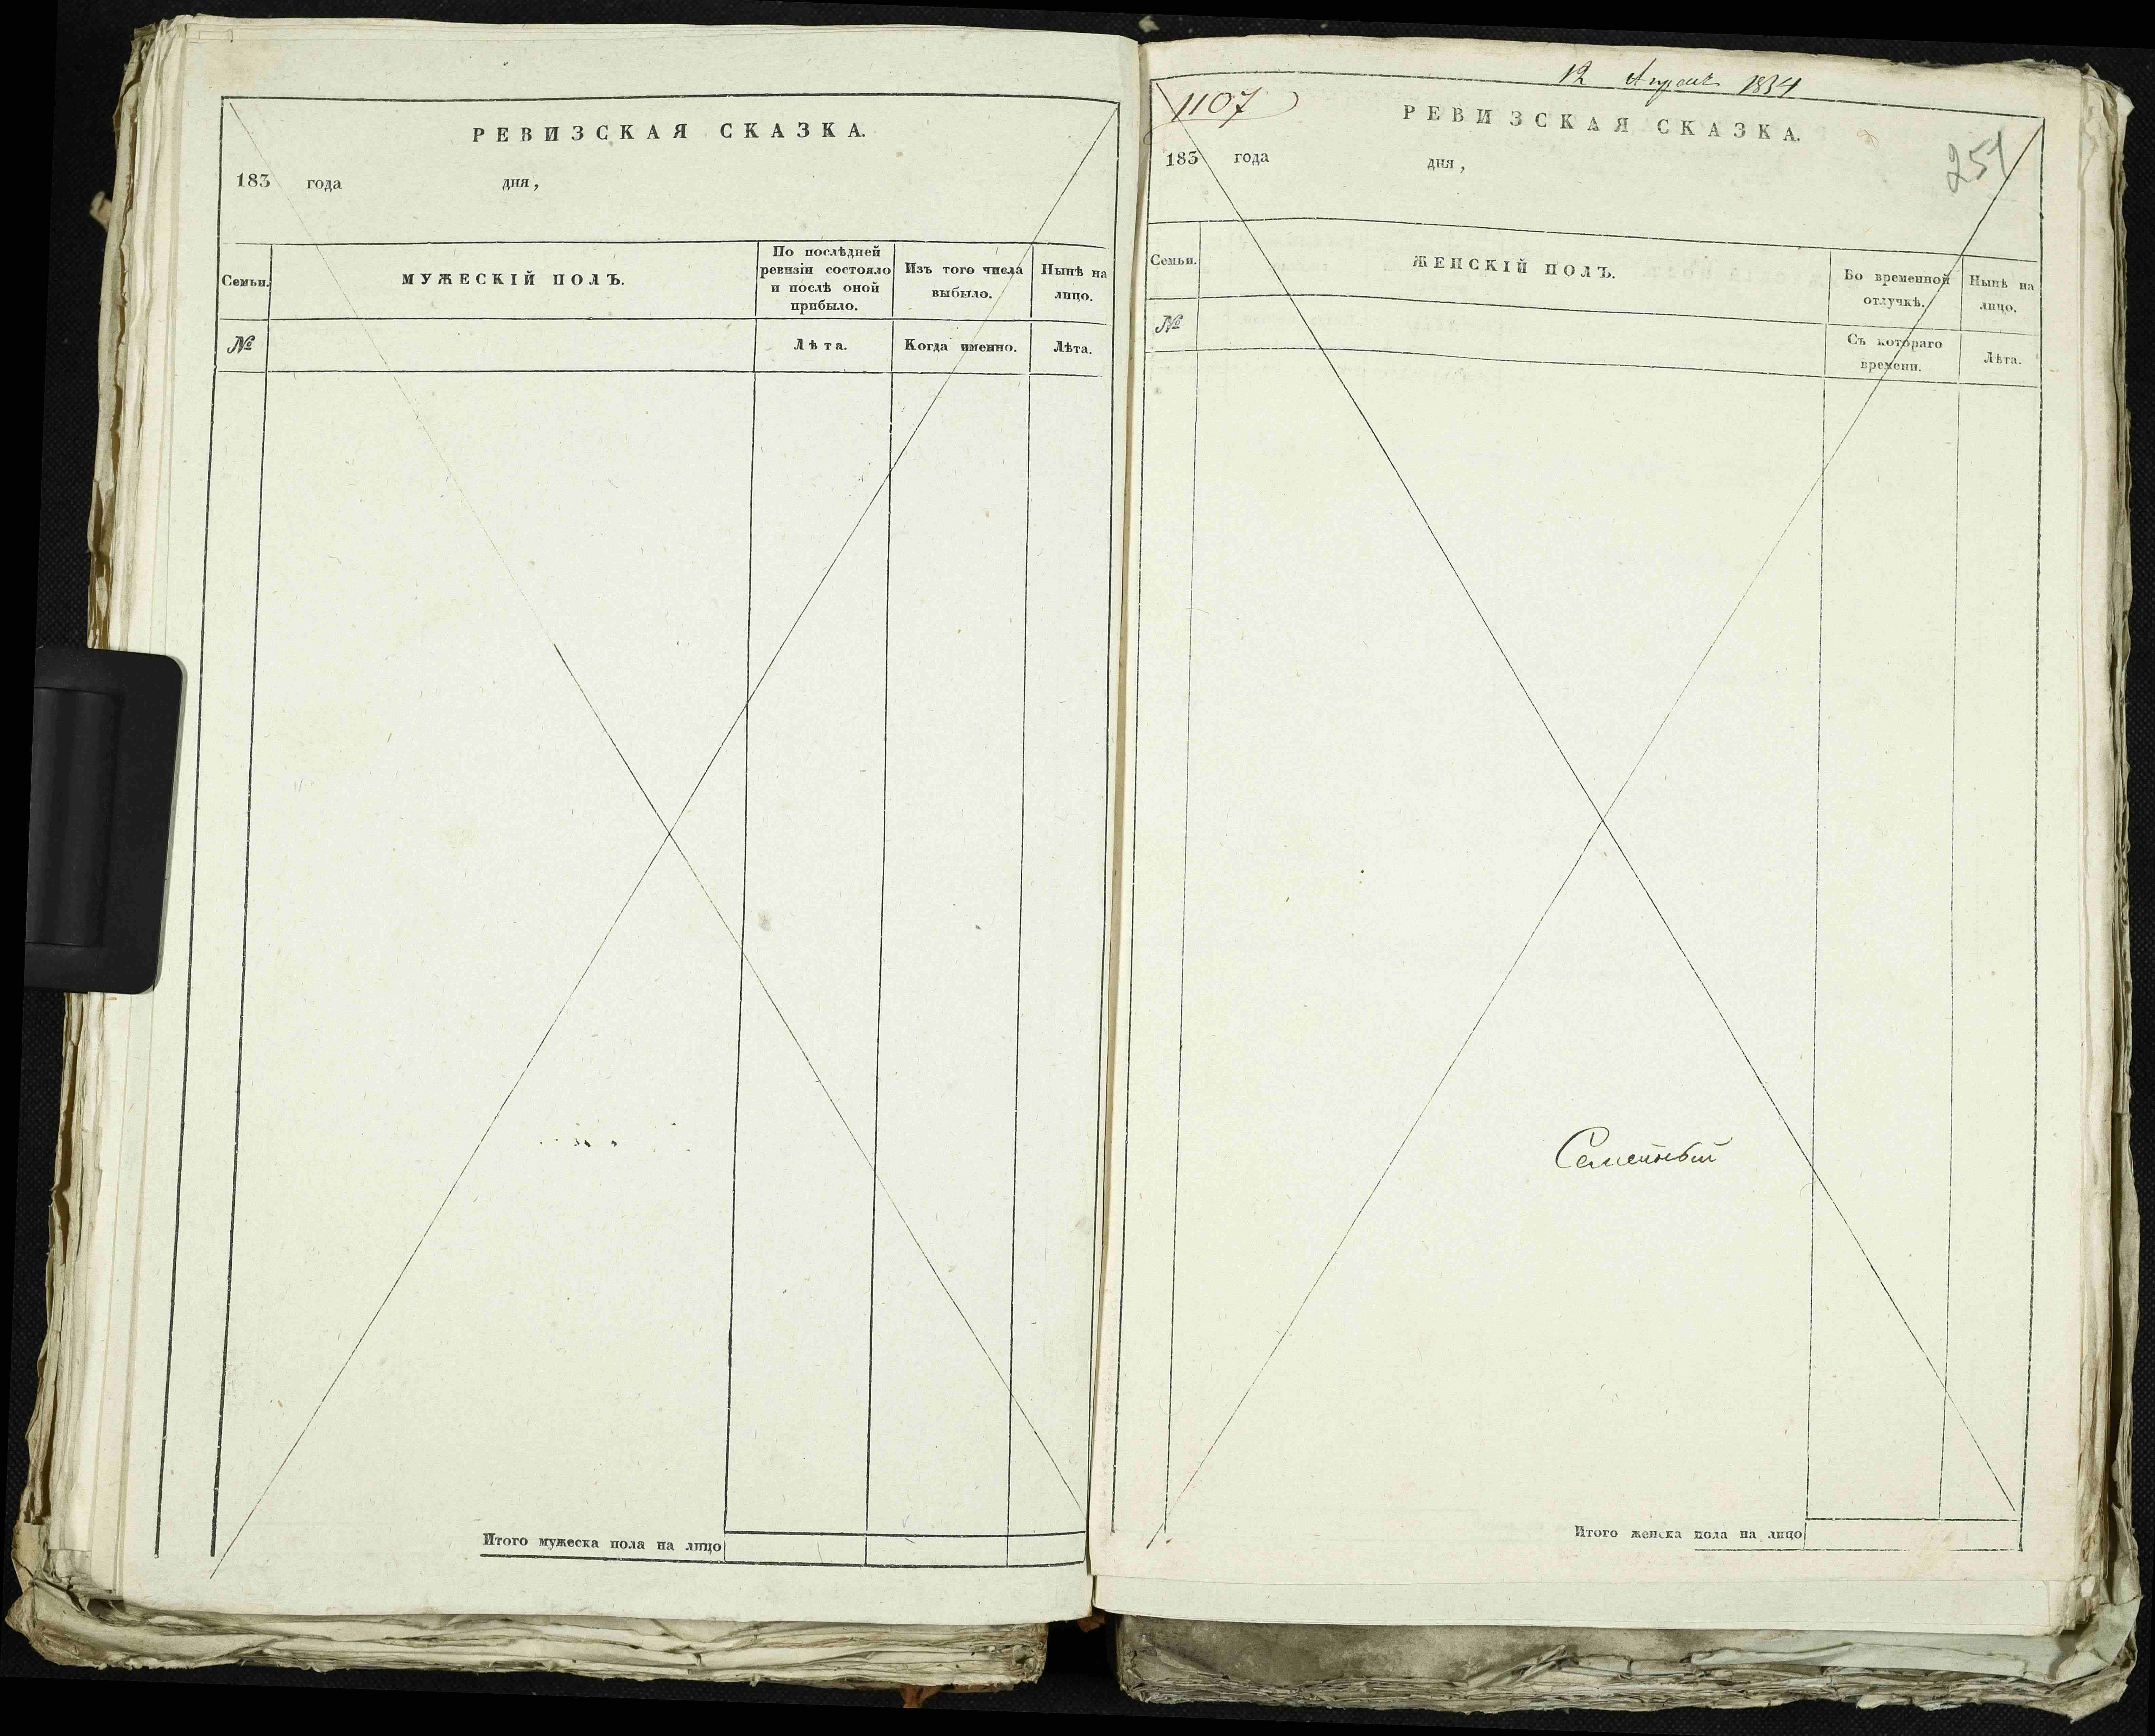 РЕВИЗСКАЯ СКАЗКА.
183 года дня,
Семьи.
МУЖЕСКІЙ ПОЛЪ.
По послѣдней
ревизіи состояло
и послѣ оной
прибыло.
Изъ того числа
выбыло.
Нынѣ на
лицо.
№
Лѣта.
Когда именно.
Лѣта.
Итого мужеска пола на лицо
12 Апреля 1834
1107
РЕВИЗСКАЯ СКАЗКА.
251
183 года дня,
Семьи.
ЖЕНСКІЙ ПОЛЪ.
Во временной
отлучкѣ.
Нынѣ на
лицо.
№
Съ котораго
времени.
Лѣта.
Семейный
Итого женска пола на лицо